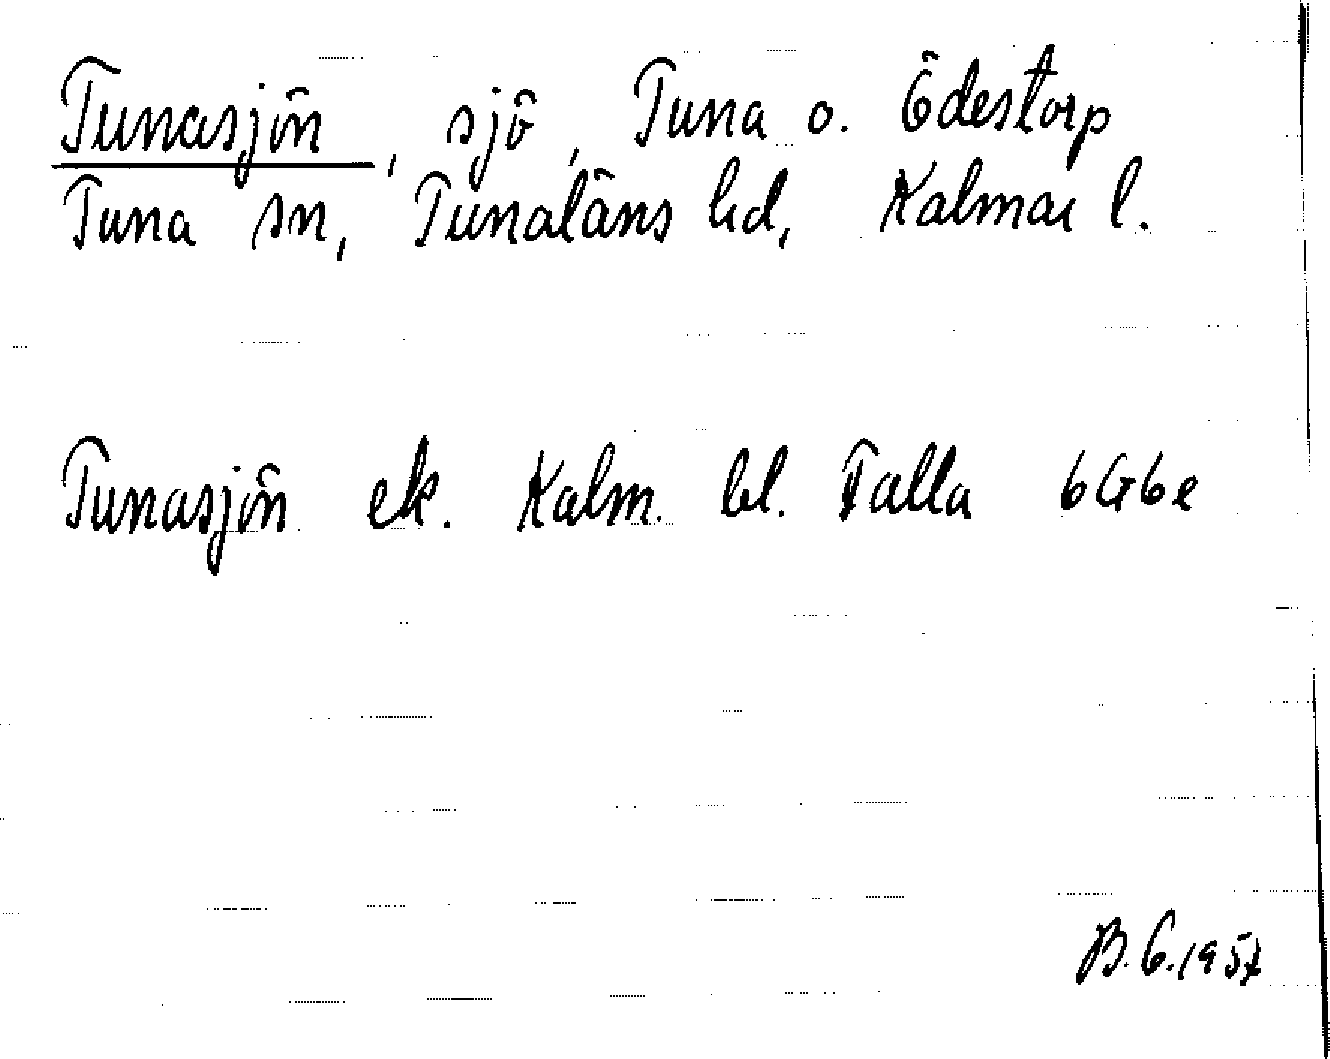 Tunasjön, sjö, Tuna o. Ödestorp
Tuna sn, Tunaläns hd, Kalmar l.
Tunasjön ek. Kalm. bl. Talla 6G6e
B.G.1957